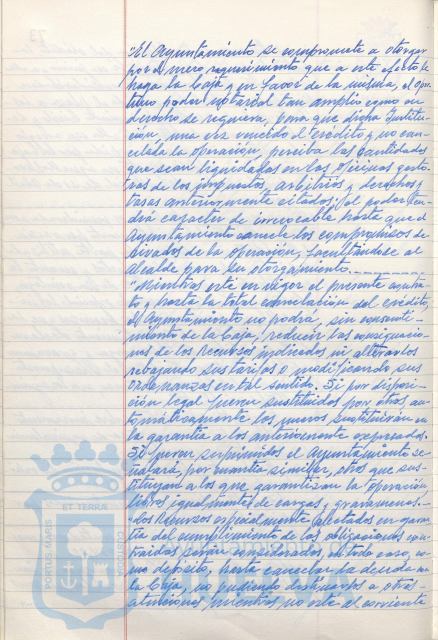 "El Ayuntamiento se compromete a otorgar
por el mero requerimiento que a este efecto le
haga la Caja y en favor de la misma, el opor-
tuno poder notarial tan amplio como en
derecho se requiera, para que dicha Institu-
ción, una vez vencido el crédito y no can-
celada la operación, perciba las cantidades
que sean liquidadas en las oficinas gesto-
ras de los impuestos, arbitrios y derechos y
tasas anteriormente citados; el poder ten-
drá caracter de irrevocable hasta que el
Ayuntamiento cancele los compromisos de-
rivados de la operación, facultándose al
Alcalde para su otorgamiento.
"Mientras esté en vigor el presente contra-
to y hasta la total cancelación del crédito,
el Ayuntamiento no podrá, sin consenti-
miento de la Caja, reducir las consignacio-
nes de los recursos indicados ni alterarlos
rebajando sus tarifas o modificando sus
Ordenanzas en tal sentido. Si por disposi-
ción legal fueren sustituidos por otros, au-
tomáticamente los nuevos sustituirán en
la garantía a los anteriormente expresados.
Si fueren suprimidos el Ayuntamiento se-
ñalará, por cuantía similar, otros que sus-
tituyan a los que garantizan la operación,
libres igualmente de cargas y gravamenes.
"Los recursos especialmente afectados en garan-
tía del cumplimiento de las obligaciones con-
traidas serán considerados, en todo caso, co-
mo depósito, hasta cancelar la deuda con
la Caja, no pudiendo destinarse a otras
atenciones mientras no esté al corriente
PORTUS MARIS ET TERRAE CUSTODIA